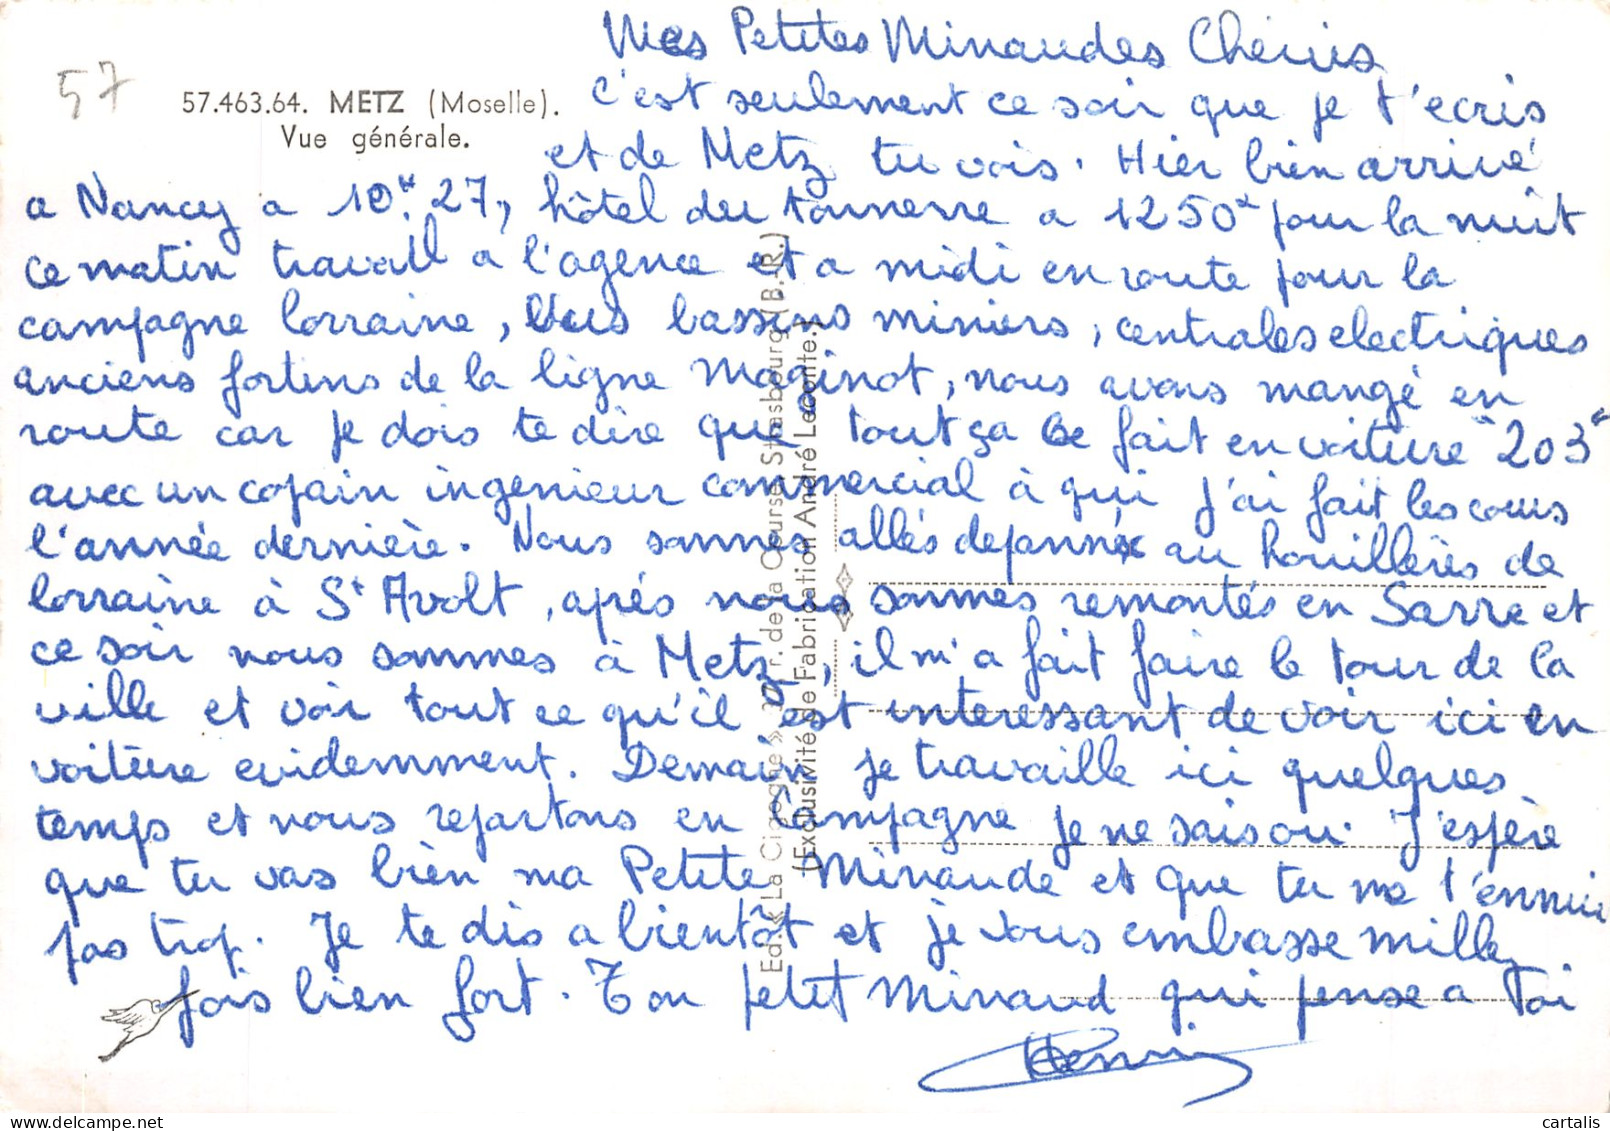 57
57.463.64. METZ (Moselle).
Vue générale.
Mes Petites Minaudes Chéries
c'est seulement ce soir que je t'ecris
et de Metz tu vois. Hier bien arrivé
a Nancy a 19H27, hôtel du tonnerre a 1250F pour la nuit
ce matin travail a l'agence et a midi en route pour la
campagne lorraine, Vus bassins miniers, centrales electriques
anciens fortins de la ligne Maginot, nous avons mangé en
route car je dois te dire que tout ça ce fait en voiture "203"
avec un copain ingenieur commercial à qui j'ai fait les cours
l'année dernière. Nous sommes allés depanné au houillères de
lorraine à St Avolt, après nous sommes remontés en Sarre et
ce soir nous sommes à Metz, il m'a fait faire le tour de la
ville et voir tout ce qu'il est interessant de voir ici en
voiture evidemment. Demain je travaille ici quelques
temps et nous repartons en Campagne je ne sais ou. J'espère
que tu vas bien ma Petite Minaude et que tu ne t'ennui
pas trop. Je te dis a bientôt et je vous embrasse mille
fois bien fort. Ton petit Minaud qui pense a Toi
Henri
Ed. « La Cigogne » r. de la Course Strasbourg (B.-R.)
(Exclusivité de Fabrication André Leconte.)
cartalis